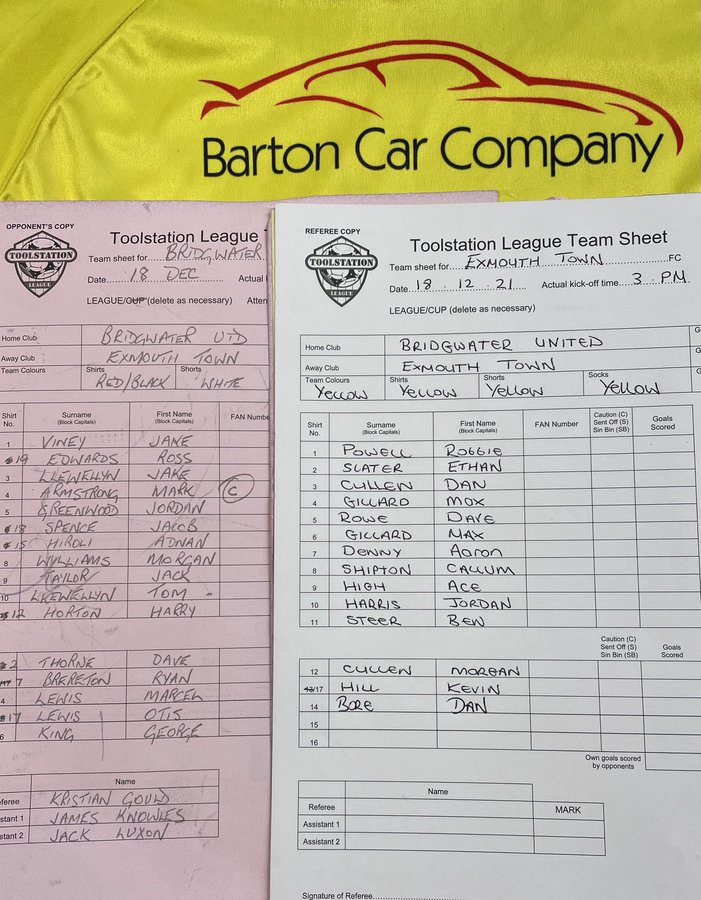 Barton Car Company
OPPONENT'S COPY
TOOLSTATION
LEAGUE
Toolstation League
Team sheet for BRIDGWATER
Date 18 DEC Actual
LEAGUE/CUP (delete as necessary) Atten
Home Club BRIDGWATER UTD
Away Club EXMOUTH TOWN
Team Colours Shirts RED/BLACK Shorts WHITE
Shirt No. Surname (Block Capitals) First Name (Block Capitals) FAN Numbe
1 VINEY JAKE
19 EDWARDS ROSS
3 LLEWELLYN JAKE
4 ARMSTRONG MARK C
5 GREENWOOD JORDAN
18 SPENCE JACOB
15 HIROLI ADNAN
8 WILLIAMS MORGAN
9 TAYLOR JACK
10 LLEWELLYN TOM
12 HORTON HARRY
2 THORNE DAVE
7 BRERETON RYAN
4 LEWIS MARCEL
17 LEWIS OTIS
6 KING GEORGE
Name
eferee KRISTIAN GOULD
stant 1 JAMES KNOWLES
stant 2 JACK LUXON
REFEREE COPY
TOOLSTATION
LEAGUE
Toolstation League Team Sheet
Team sheet for EXMOUTH TOWN FC
Date 18 . 12 . 21 Actual kick-off time 3 : PM
LEAGUE/CUP (delete as necessary)
Home Club BRIDGWATER UNITED G
Away Club EXMOUTH TOWN G
Team Colours Yellow Shirts Yellow Shorts Yellow Socks Yellow
Shirt No. Surname (Block Capitals) First Name (Block Capitals) FAN Number Caution (C) Sent Off (S) Sin Bin (SB) Goals Scored
1 POWELL ROBBIE
2 SLATER ETHAN
3 CULLEN DAN
4 GILLARD MOX
5 ROWE DAVE
6 GILLARD MAX
7 DENNY AARON
8 SHIPTON CALLUM
9 HIGH ACE
10 HARRIS JORDAN
11 STEER BEN
Caution (C) Sent Off (S) Sin Bin (SB) Goals Scored
12 CULLEN MORGAN
17 HILL KEVIN
14 BORE DAN
15
16
Own goals scored by opponents
Name
Referee MARK
Assistant 1
Assistant 2
Signature of Referee